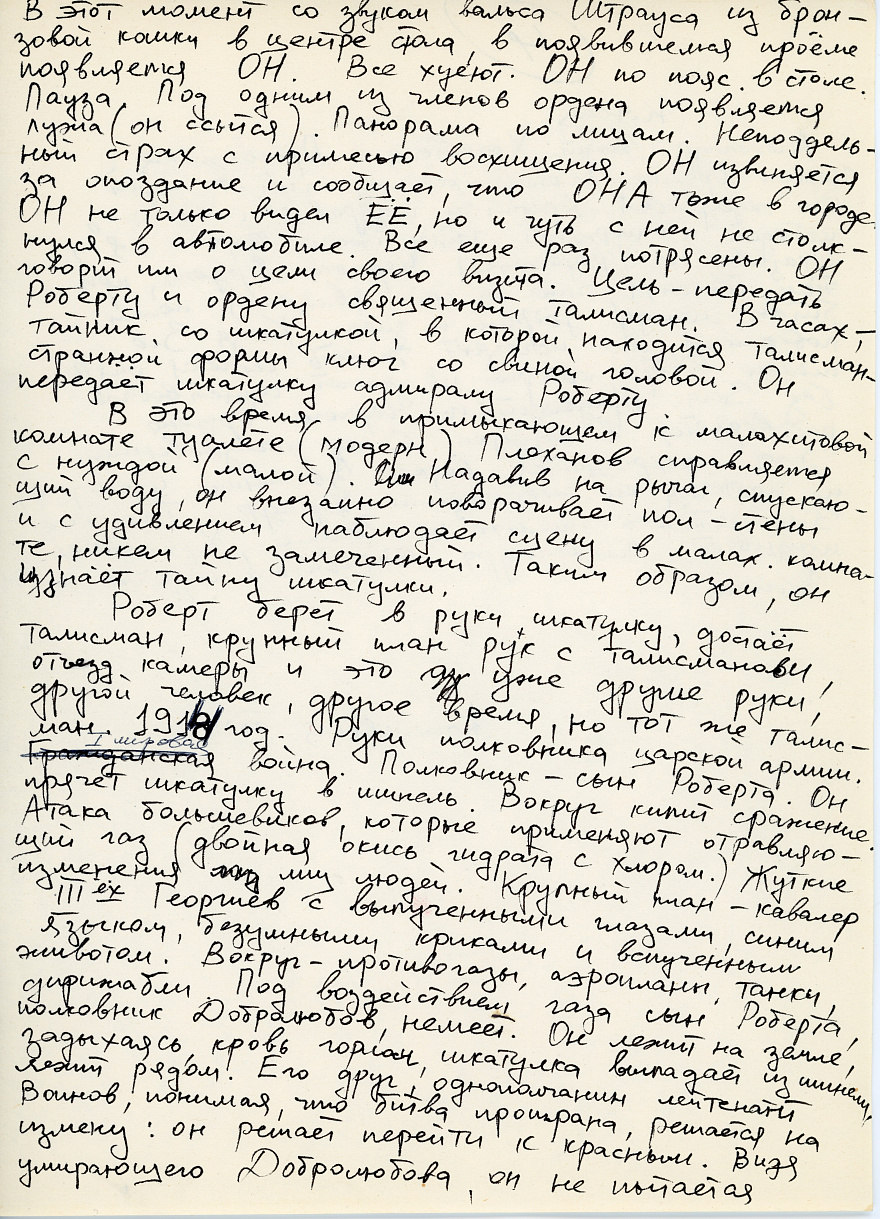 В этот момент со звуком вальса Штрауса из брон-
зовой кошки в центре стола, в появившемся проёме
появляется ОН. Все хуеют. ОН по пояс в столе.
Пауза. Под одним из членов ордена появляется
лужа (он ссытся). Панорама по лицам. Неподдель-
ный страх с примесью восхищения. ОН извиняется
за опоздание и сообщает, что ОНА тоже в городе.
ОН не только видел ЕЁ, но и чуть с ней не столк-
нулся в автомобиле. Все еще раз потрясены. ОН
говорит им о цели своего визита. Цель - передать
Роберту и ордену священный талисман. В часах -
тайник со шкатулкой, в которой находится талисман -
странной формы ключ со свиной головой. Он
передаёт шкатулку адмиралу Роберту.
В это время в примыкающем к малахитовой
комнате туалете (модерн) Плоханов справляется
с нуждой (малой). Надавив на рычаг, спускаю-
щий воду, он внезапно поворачивает пол-стены
и с удивлением наблюдает сцену в малах. комна-
те, никем не замеченный. Таким образом, он
узнаёт тайну шкатулки.
Роберт берёт в руки шкатулку, достаёт
талисман, крупный план рук с талисманом,
отъезд камеры и это уже другие руки,
другой человек, другое время, но тот же талис-
ман. 1918 год. Руки полковника царской армии.
I мировая
Гражданская война. Полковник - сын Роберта. Он
прячет шкатулку в шинель. Вокруг кипит сражение.
Атака большевиков, которые применяют отравляю-
щий газ (двойная окись гидрата с хлором.) Жуткие
изменения лиц людей. Крупный план - кавалер
III ех Георгиев с выпученными глазами, синим
языком, безумными криками и вспученным
животом. Вокруг - противогазы, аэропланы, танки,
дирижабли. Под воздействием газа сын Роберта,
полковник Добралюбов, немеет. Он лежит на земле,
задыхаясь, кровь горлом, шкатулка выпадает из шинели,
лежит рядом. Его друг, однополчанин лейтенант
Воинов, понимая, что битва проиграна, решается на
измену: он решает перейти к красным. Видя
умирающего Добролюбова, он не пытается